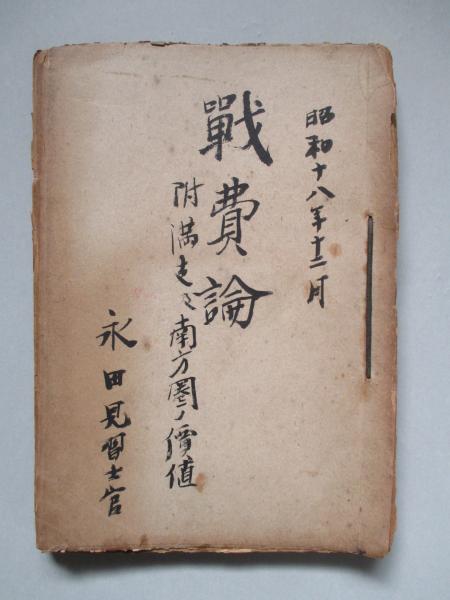 昭和十八年十二月
戰費論
附滿支及南方圏ノ價値
永田見習士官